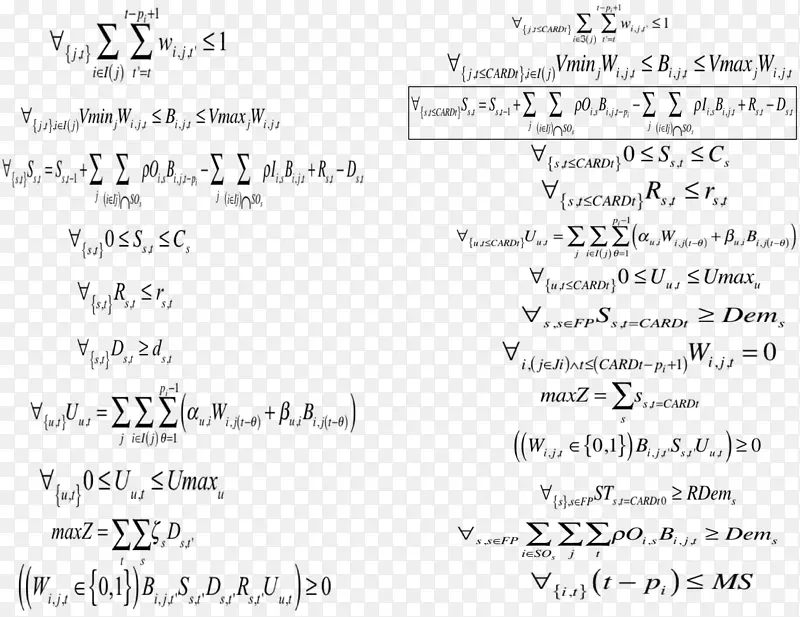 ∀{j,t} ∑i∈I(j) ∑t'=t t-pi+1 wi,j,t' ≤ 1
∀{j,t},i∈I(j) VminjWi,j,t ≤ Bi,j,t ≤ VmaxjWi,j,t
∀{s,t} Ss,t = Ss,t-1 + ∑j ∑(i∈Ij)∩SOs ρOi,sBi,j,t-pi − ∑j ∑(i∈Ij)∩SOs ρIi,sBi,j,t + Rs,t − Ds,t
∀{s,t} 0 ≤ Ss,t ≤ Cs
∀{s,t} Rs,t ≤ rs,t
∀{s,t} Ds,t ≥ ds,t
∀{u,t} Uu,t = ∑j ∑i∈I(j) ∑θ=1 pi−1 (αu,iWi,j(t−θ) + βu,iBi,j(t−θ))
∀{u,t} 0 ≤ Uu,t ≤ Umaxu
maxZ = ∑t ∑s ζsDs,t'
((Wi,j,t ∈{0,1})Bi,j,t'Ss,t'Ds,t'Rs,t'Uu,t) ≥ 0
∀{j,t≤CARDt} ∑i∈ℑ(j) ∑t'=t t−pi+1 wi,j,t' ≤ 1
∀{j,t≤CARDt},i∈I(j) VminjWi,j,t ≤ Bi,j,t ≤ VmaxjWi,j,t
∀{s,t≤CARDt} Ss,t = Ss,t-1 + ∑j ∑(i∈Ij)∩SOs ρOi,sBi,j,t-pi − ∑j ∑(i∈Ij)∩SOs ρIi,sBi,j,t + Rs,t − Ds,t
∀{s,t≤CARDt} 0 ≤ Ss,t ≤ Cs
∀{s,t≤CARDt} Rs,t ≤ rs,t
∀{u,t≤CARDt} Uu,t = ∑j ∑i∈I(j) ∑θ=1 pi−1 (αu,iWi,j(t−θ) + βu,iBi,j(t−θ))
∀{u,t≤CARDt} 0 ≤ Uu,t ≤ Umaxu
∀s,s∈FP Ss,t=CARDt ≥ Dems
∀i,(j∈Ji)∧t≤(CARDt−pi+1) Wi,j,t = 0
maxZ = ∑s ss,t=CARDt
((Wi,j,t ∈{0,1})Bi,j,t'Ss,t'Uu,t) ≥ 0
∀{s},s∈FP STs,t=CARDt0 ≥ RDems
∀s,s∈FP ∑i∈SOs ∑j ∑t ρOi,sBi,j,t ≥ Dems
∀{i,t} (t − pi) ≤ MS